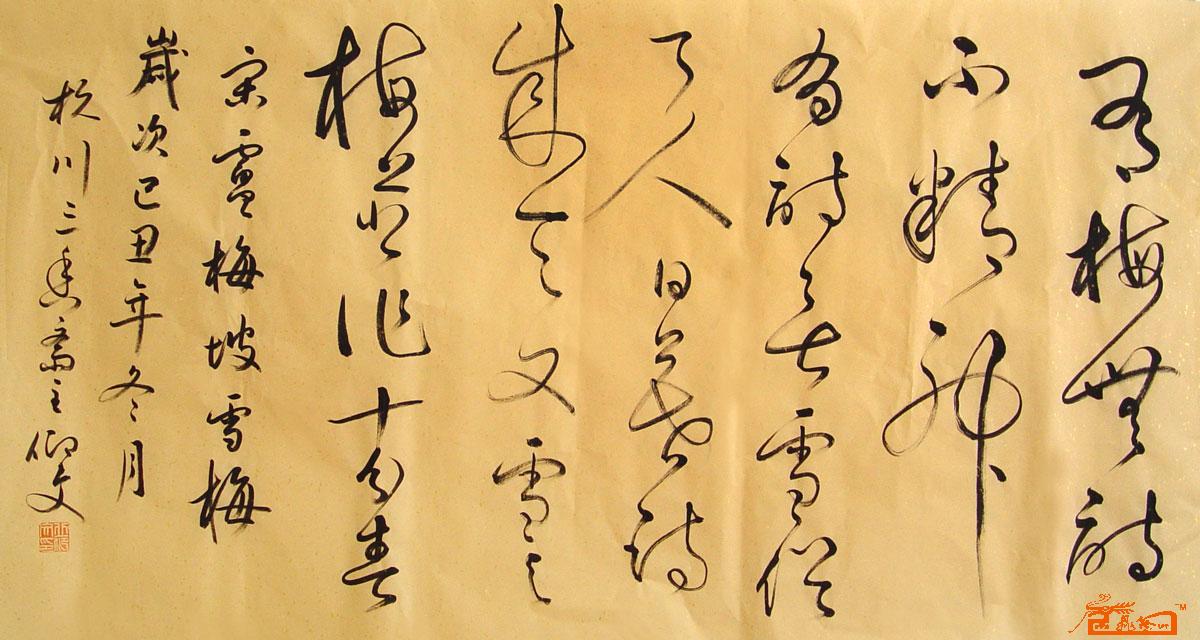 有梅無詩
不精神
有詩无雪俗
了人日暮詩
成天又雪与
梅並作十分春
宋盧梅坡雪梅
歲次己丑年冬月
杭川三香斋主仰文